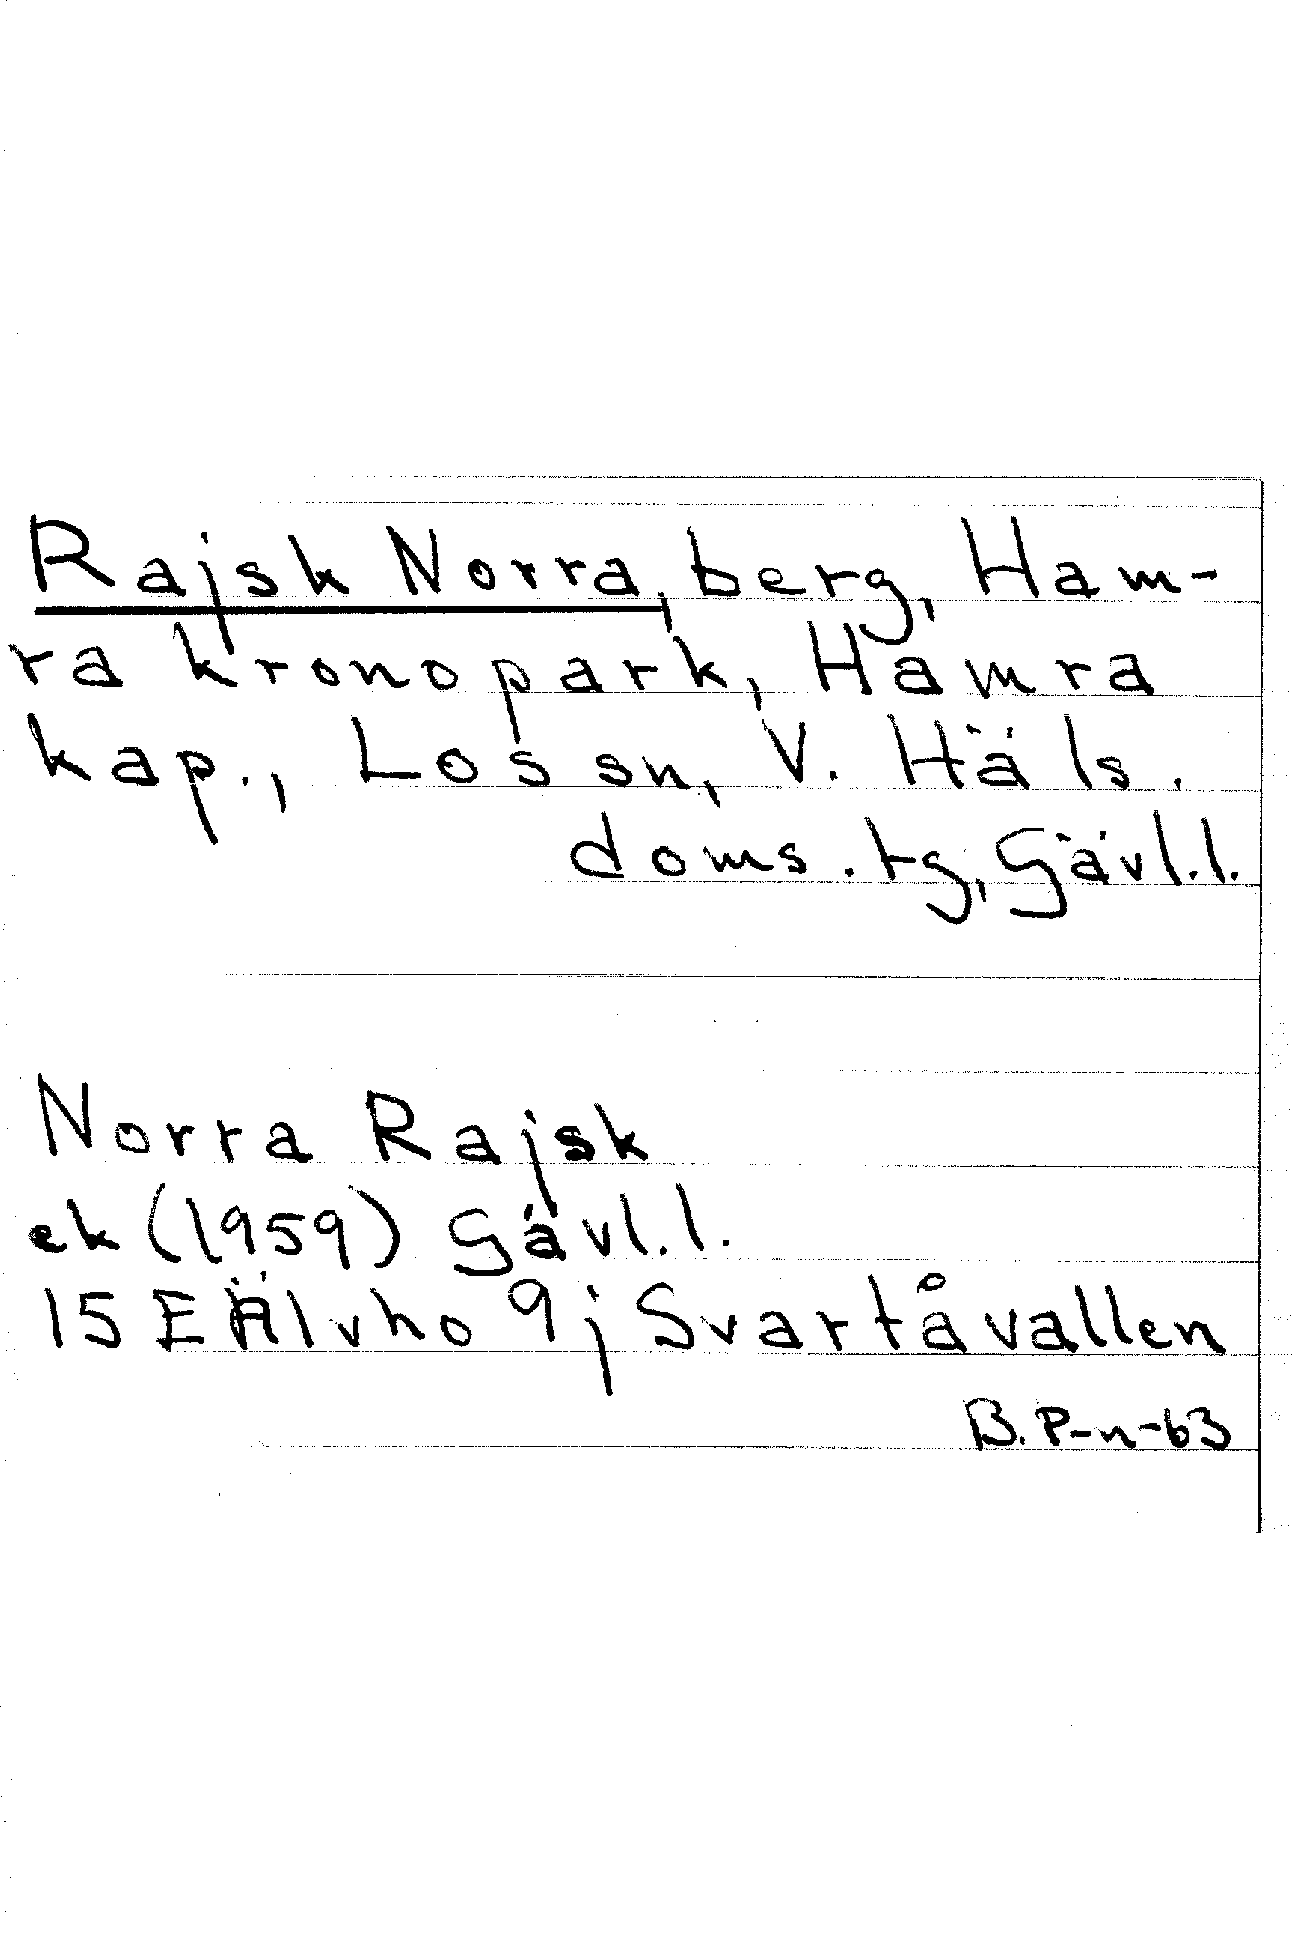 Rajsk Norra, berg, Ham-
ra kronopark, Hamra
kap., Los sn, V. Häls.
doms.tg, Gävl.l.
Norra Rajsk
ek (1959) Gävl.l.
15 E Älvho 9j Svartåvallen
B.P-n-63